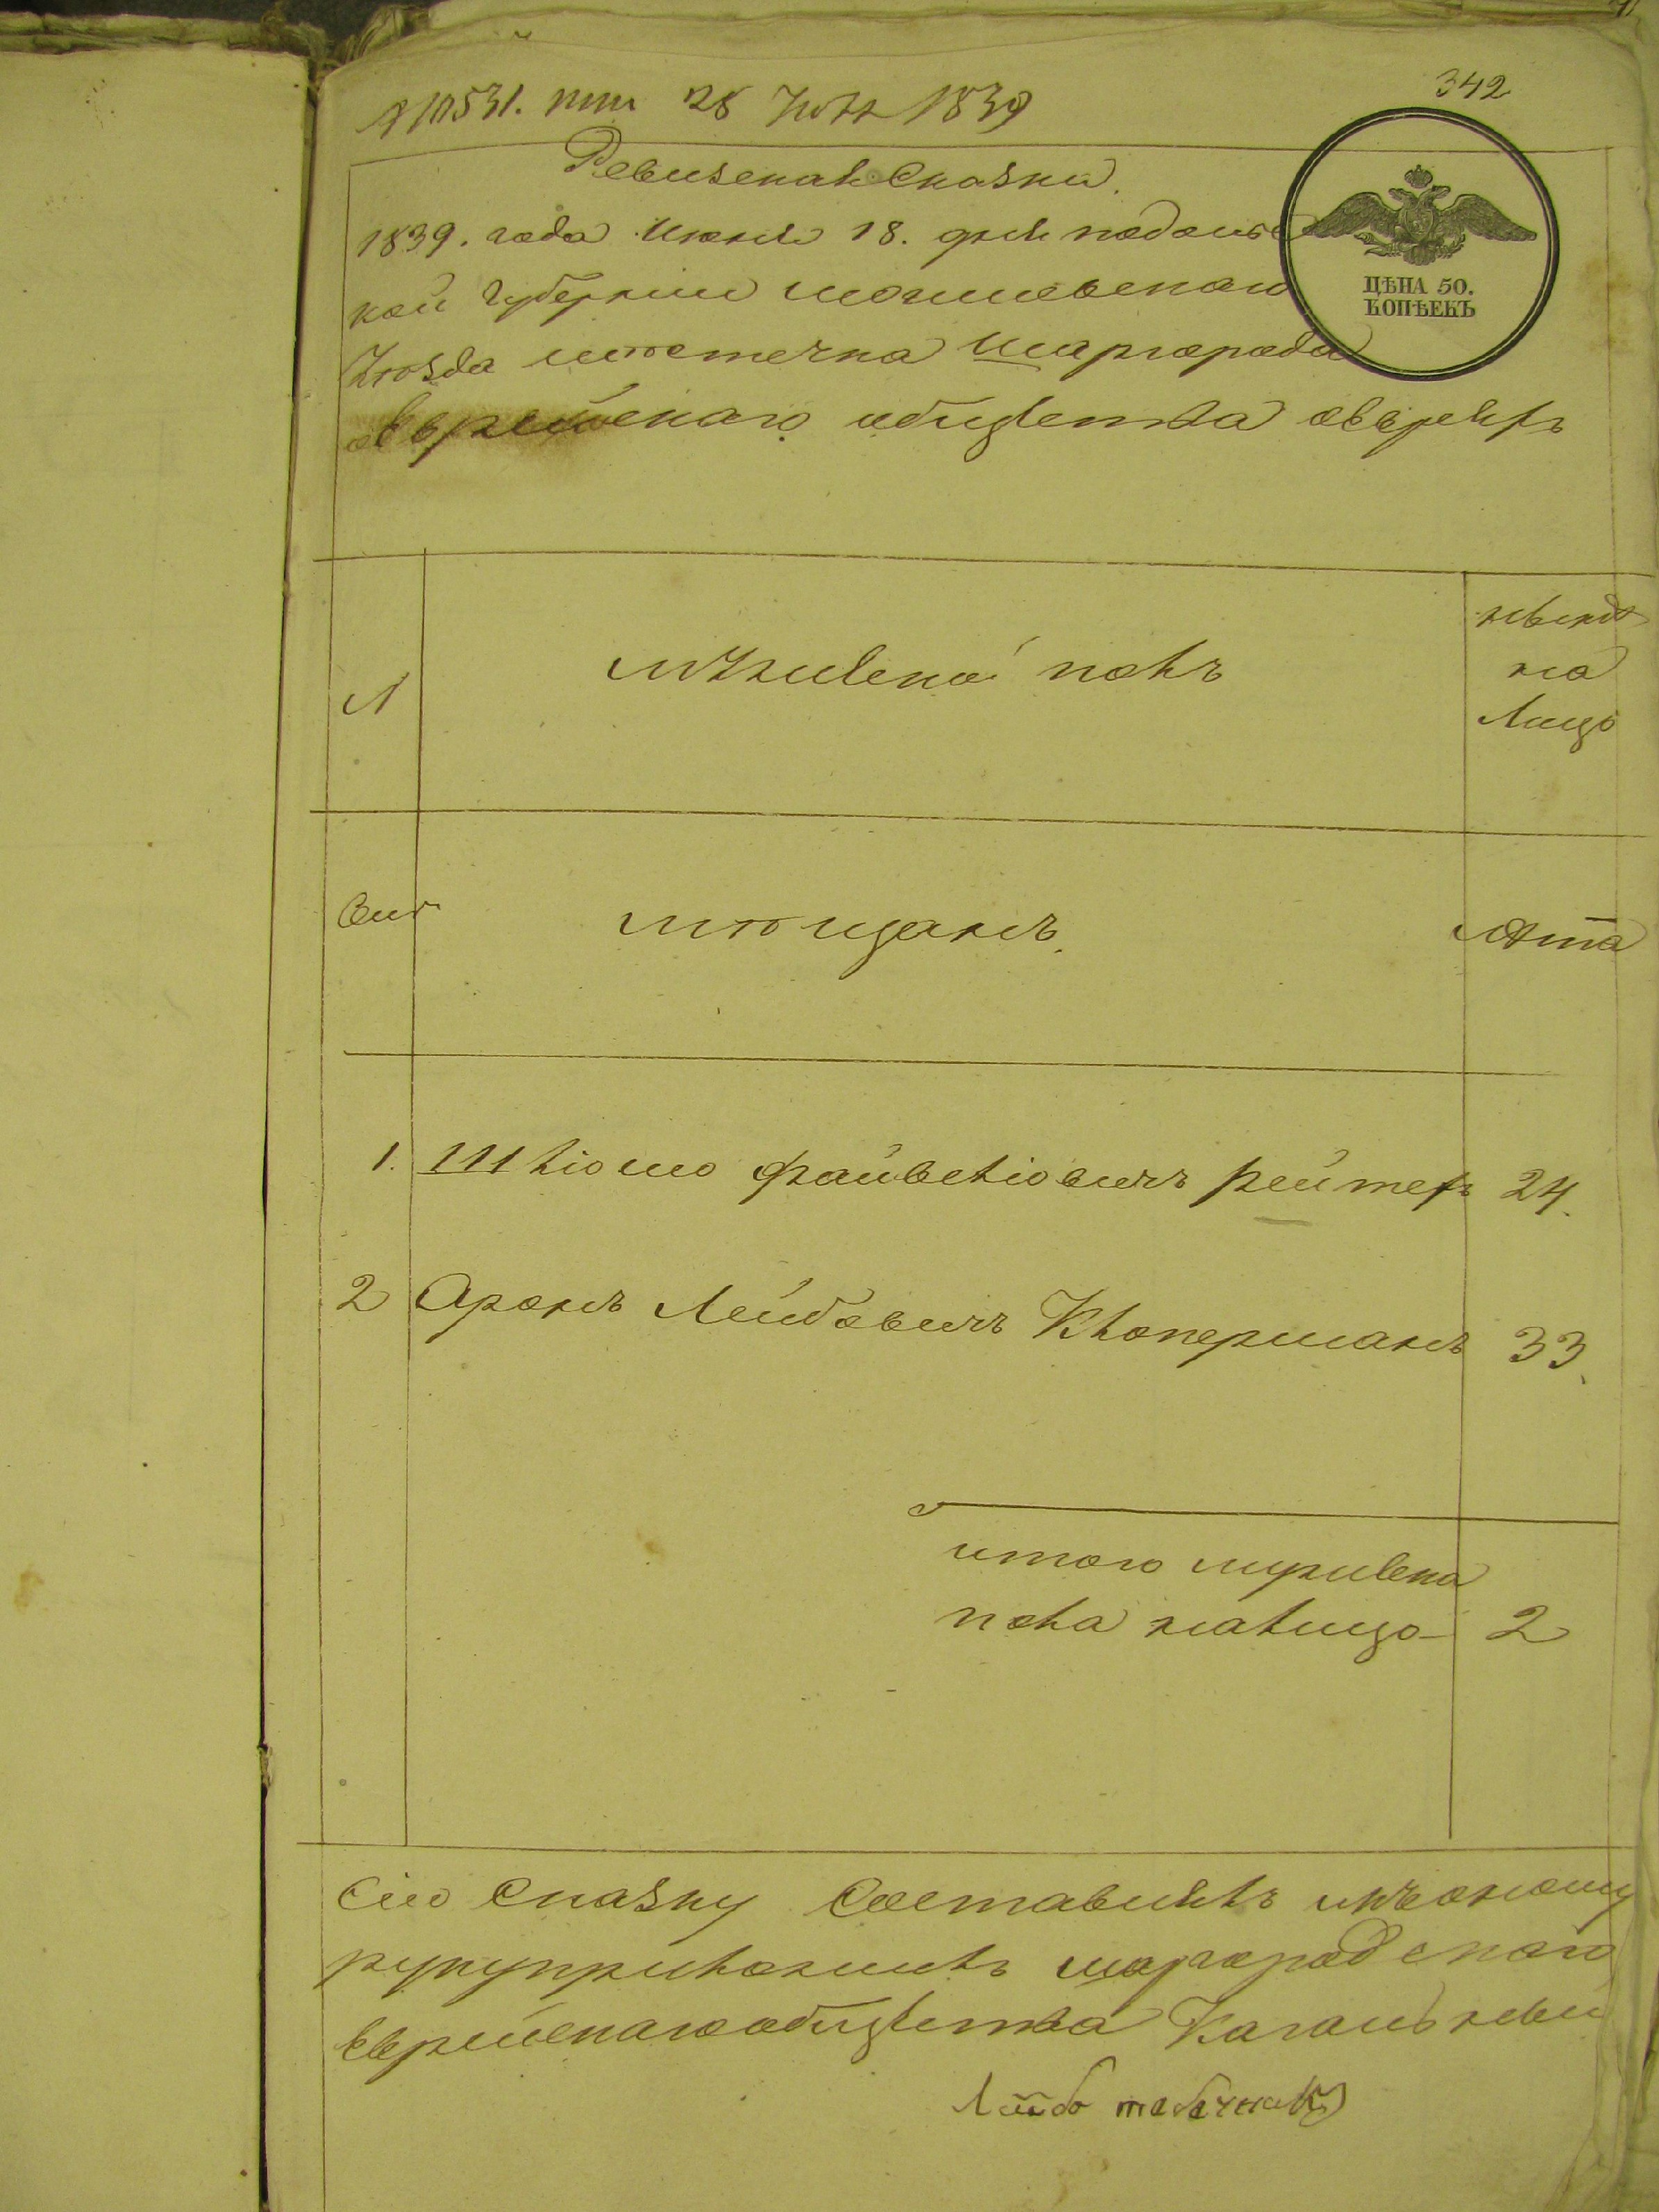 342
28 1839
Ревизская Сказка.
1839. года июня 18. дня подольс
кой губернии могилевскаго
уѣзда мѣстечка Шаргорода
еврейскаго общества евреяхъ
ЦѢНА 50.
КОПѢЕКЪ
№
мужеска полъ
нынѣ
на
лицо
мѣщанъ.
лѣта
1. Шліомо Файвеліовичъ Рейтеръ 24.
2 Аронъ Лейбовичъ Клоперманъ 33.
итого мужеска
пола налицо – 2
Сію Сказку Составилъ
руку приложилъ шаргородскаго
еврейскаго общества Кагальный
Лейбо табачник